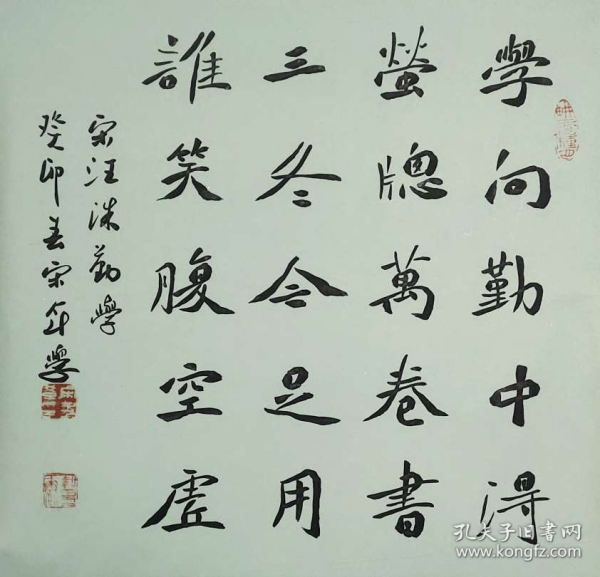 學向勤中得
螢牕萬卷書
三冬今足用
誰笑腹空虛
宋汪洙勤學
癸卯春宋年學
孔夫子旧书网
www.kongfz.com